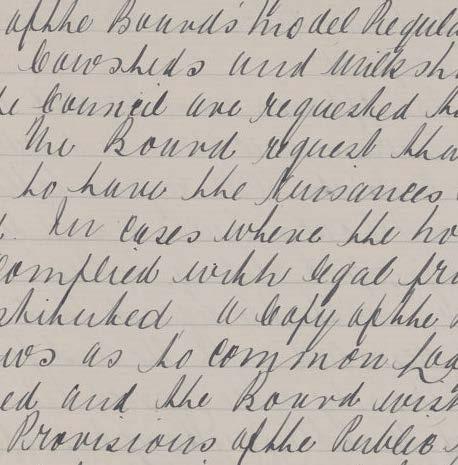 of the Boards' Model Regula
Cowsheds and milksh
he Council are requested th
The Board request tha
to have the Nuisances
d. In cases where the no
complied with legal pro
stituted a Copy of the
aws as to common Lod
ed and the Board wish
Provisions of the Public